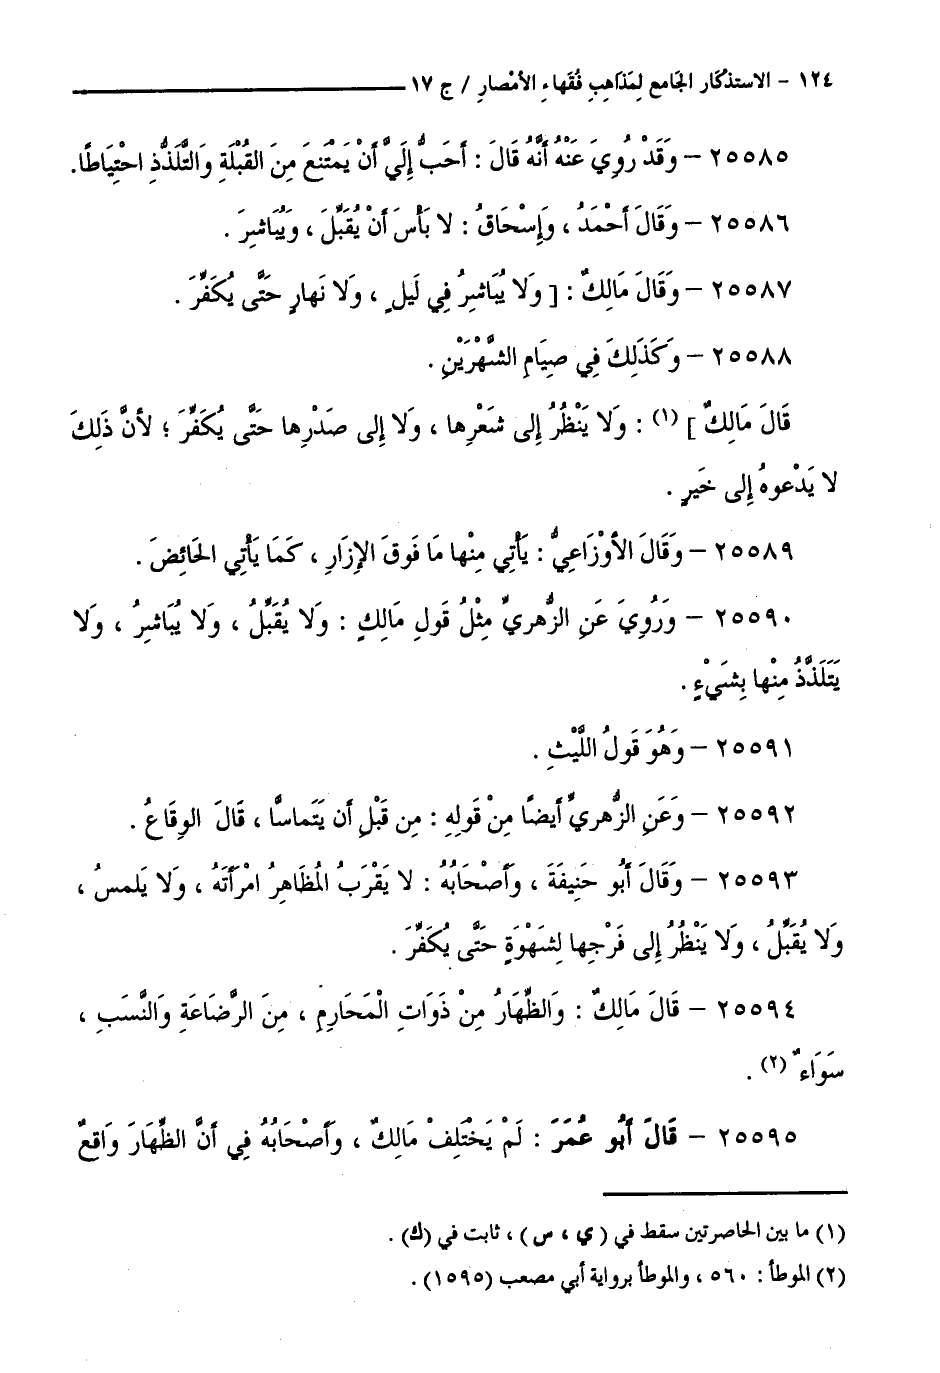 ١٢٤ - الاستذكار الجامع لِمَذَاهِبِ فُقَهاءِ الأمْصارِ / ج ١٧
٢٥٥٨٥ - وَقَدْ رُوِيَ عَنْهُ أَنَّهُ قَالَ : أَحَبُّ إِلَيَّ أَنْ يَمْتَنِعَ مِنَ القُبْلَةِ وَالتَّلَذُّذِ احْتِيَاطًا.
٢٥٥٨٦ - وَقَالَ أَحْمَدُ ، وَإِسْحَاقُ : لا بَأْسَ أَنْ يُقَبِّلَ ، وَيُبَاشِرَ .
٢٥٥٨٧ - وَقَالَ مَالِكٌ : [ وَلا يُبَاشِرُ فِي لَيلٍ ، وَلا نَهارٍ حَتَّى يُكَفِّرَ .
٢٥٥٨٨ - وَكَذَلِكَ فِي صِيَامِ الشَّهْرَيْنِ .
قَالَ مَالِكٌ ] (١) : وَلا يَنْظُرُ إِلى شَعْرِها ، وَلا إِلى صَدْرِها حَتَّى يُكَفِّرَ ؛ لأنَّ ذَلِكَ
لا يَدْعوهُ إِلى خَيرٍ .
٢٥٥٨٩ - وَقَالَ الأوْزَاعِيُّ : يَأْتِي مِنْها مَا فَوقَ الإِزَارِ ، كَمَا يَأْتِي الحَائِضَ .
٢٥٥٩٠ - وَرُوِيَ عَنِ الزُّهرِيِّ مِثْلُ قَولِ مَالِكٍ : وَلا يُقَبِّلُ ، وَلا يُبَاشِرُ ، وَلا
يَتَلَذَّذُ مِنْها بِشَيْءٍ .
٢٥٥٩١ - وَهُوَ قَولُ اللَّيْثِ .
٢٥٥٩٢ - وَعَنِ الزُّهرِيِّ أَيضًا مِنْ قَولِهِ : مِن قَبْلِ أن يَتَماسَّا ، قَالَ الوِقَاعُ .
٢٥٥٩٣ - وَقَالَ أَبُو حَنِيفَةَ ، وَأَصْحَابُهُ : لا يَقْرَبُ المُظَاهِرُ امْرَأَتَهُ ، وَلا يَلمسُ ،
وَلا يُقَبِّلُ ، وَلا يَنْظُرُ إِلى فَرْجِها لِشَهْوَةٍ حَتَّى يُكَفِّرَ .
٢٥٥٩٤ - قَالَ مَالِكٌ : وَالظِّهَارُ مِنْ ذَوَاتِ الْمَحَارِمِ ، مِنَ الرَّضَاعَةِ وَالنَّسَبِ ،
سَوَاءٌ (٢) .
٢٥٥٩٥ - قَالَ أَبُو عُمَرَ : لَمْ يَخْتَلِفْ مَالِكٌ ، وَأَصْحَابُهُ فِي أَنَّ الظِّهَارَ وَاقِعٌ
(١) ما بين الحاصرتين سقط في ( ي ، س ) ، ثابت في (ك) .
(٢) الموطأ : ٥٦٠ ، والموطأ برواية أبي مصعب (١٥٩٥) .